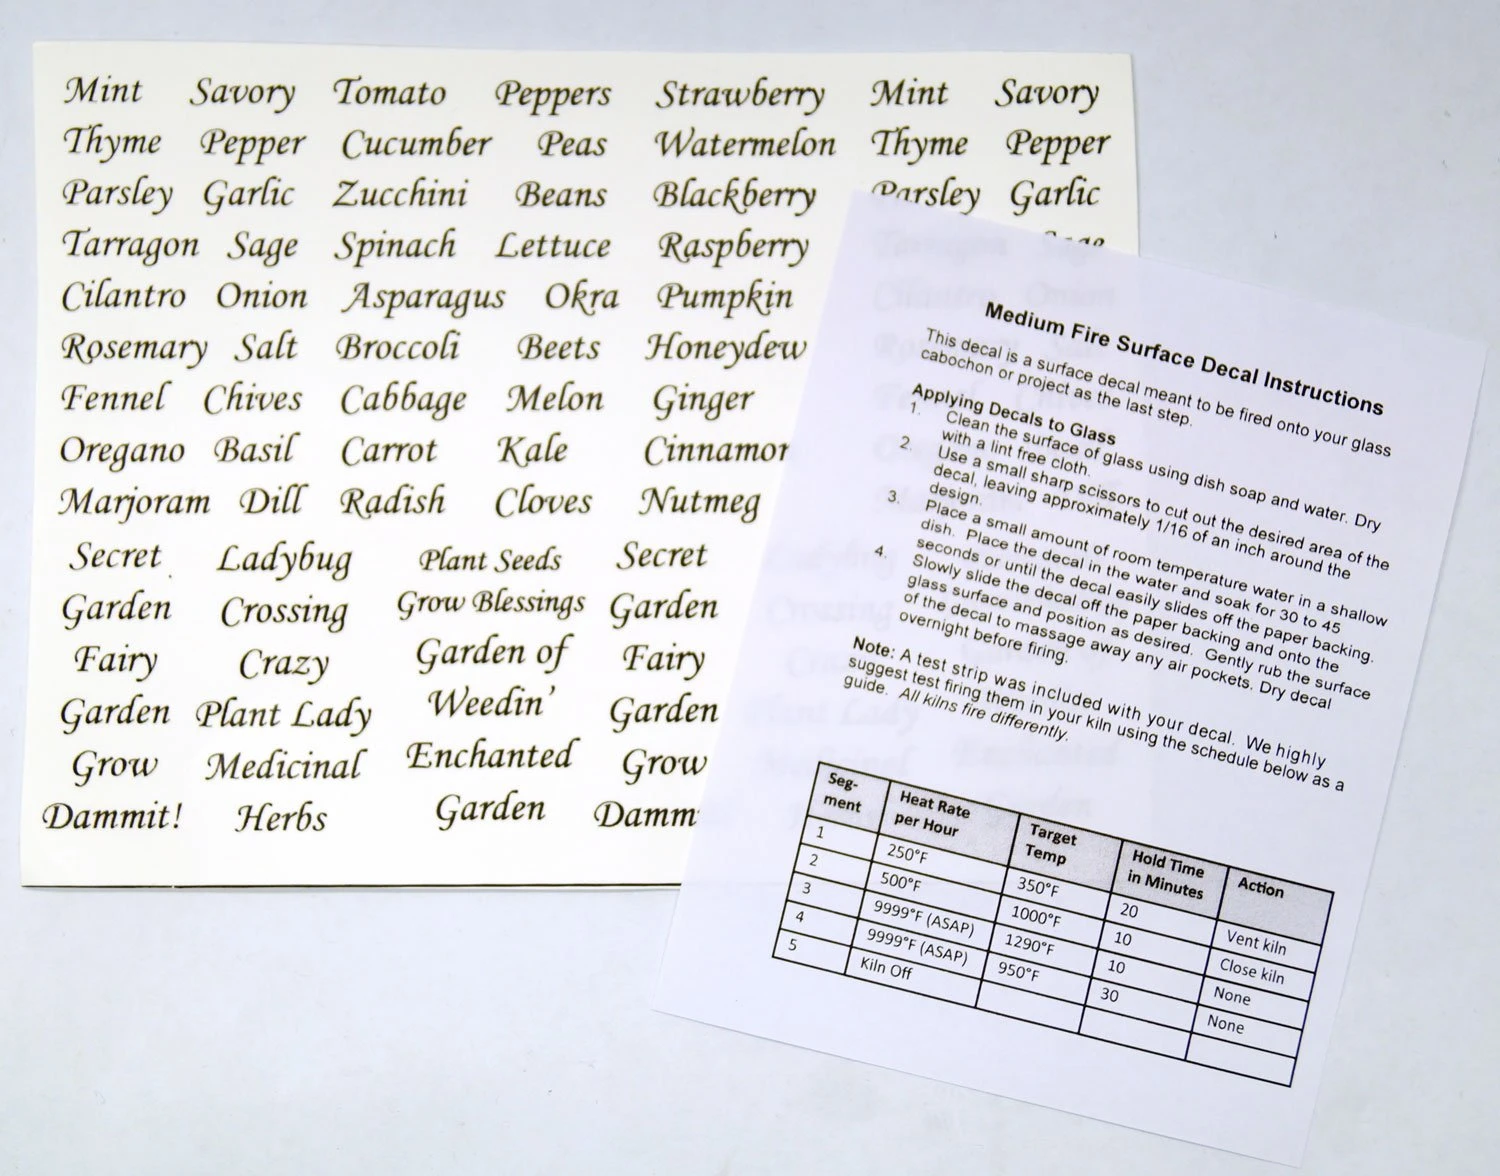 Mint Savory Tomato Peppers Strawberry Mint Savory
Thyme Pepper Cucumber Peas Watermelon Thyme Pepper
Parsley Garlic Zucchini Beans Blackberry Parsley Garlic
Tarragon Sage Spinach Lettuce Raspberry Tarragon Sage
Cilantro Onion Asparagus Okra Pumpkin Cilantro Onion
Rosemary Salt Broccoli Beets Honeydew
Fennel Chives Cabbage Melon Ginger
Oregano Basil Carrot Kale Cinnamon
Marjoram Dill Radish Cloves Nutmeg
Secret Ladybug Plant Seeds Secret
Garden Crossing Grow Blessings Garden Crossing
Fairy Crazy Garden of Fairy
Garden Plant Lady Weedin' Garden Plant Lady
Grow Medicinal Enchanted Grow Medicinal Enchanted
Dammit! Herbs Garden Damm
Medium Fire Surface Decal Instructions
This decal is a surface decal meant to be fired onto your glass
cabochon or project as the last step.
Applying Decals to Glass
1. Clean the surface of glass using dish soap and water. Dry
with a lint free cloth.
2. Use a small sharp scissors to cut out the desired area of the
decal, leaving approximately 1/16 of an inch around the
design.
3. Place a small amount of room temperature water in a shallow
dish. Place the decal in the water and soak for 30 to 45
seconds or until the decal easily slides off the paper backing.
4. Slowly slide the decal off the paper backing and onto the
glass surface and position as desired. Gently rub the surface
of the decal to massage away any air pockets. Dry decal
overnight before firing.
Note: A test strip was included with your decal. We highly
suggest test firing them in your kiln using the schedule below as a
guide. All kilns fire differently.
Seg-
ment Heat Rate
per Hour Target
Temp Hold Time
in Minutes Action
1 250°F 350°F 20 Vent kiln
2 500°F 1000°F 10 Close kiln
3 9999°F (ASAP) 1290°F 10 None
4 9999°F (ASAP) 950°F 30 None
5 Kiln Off